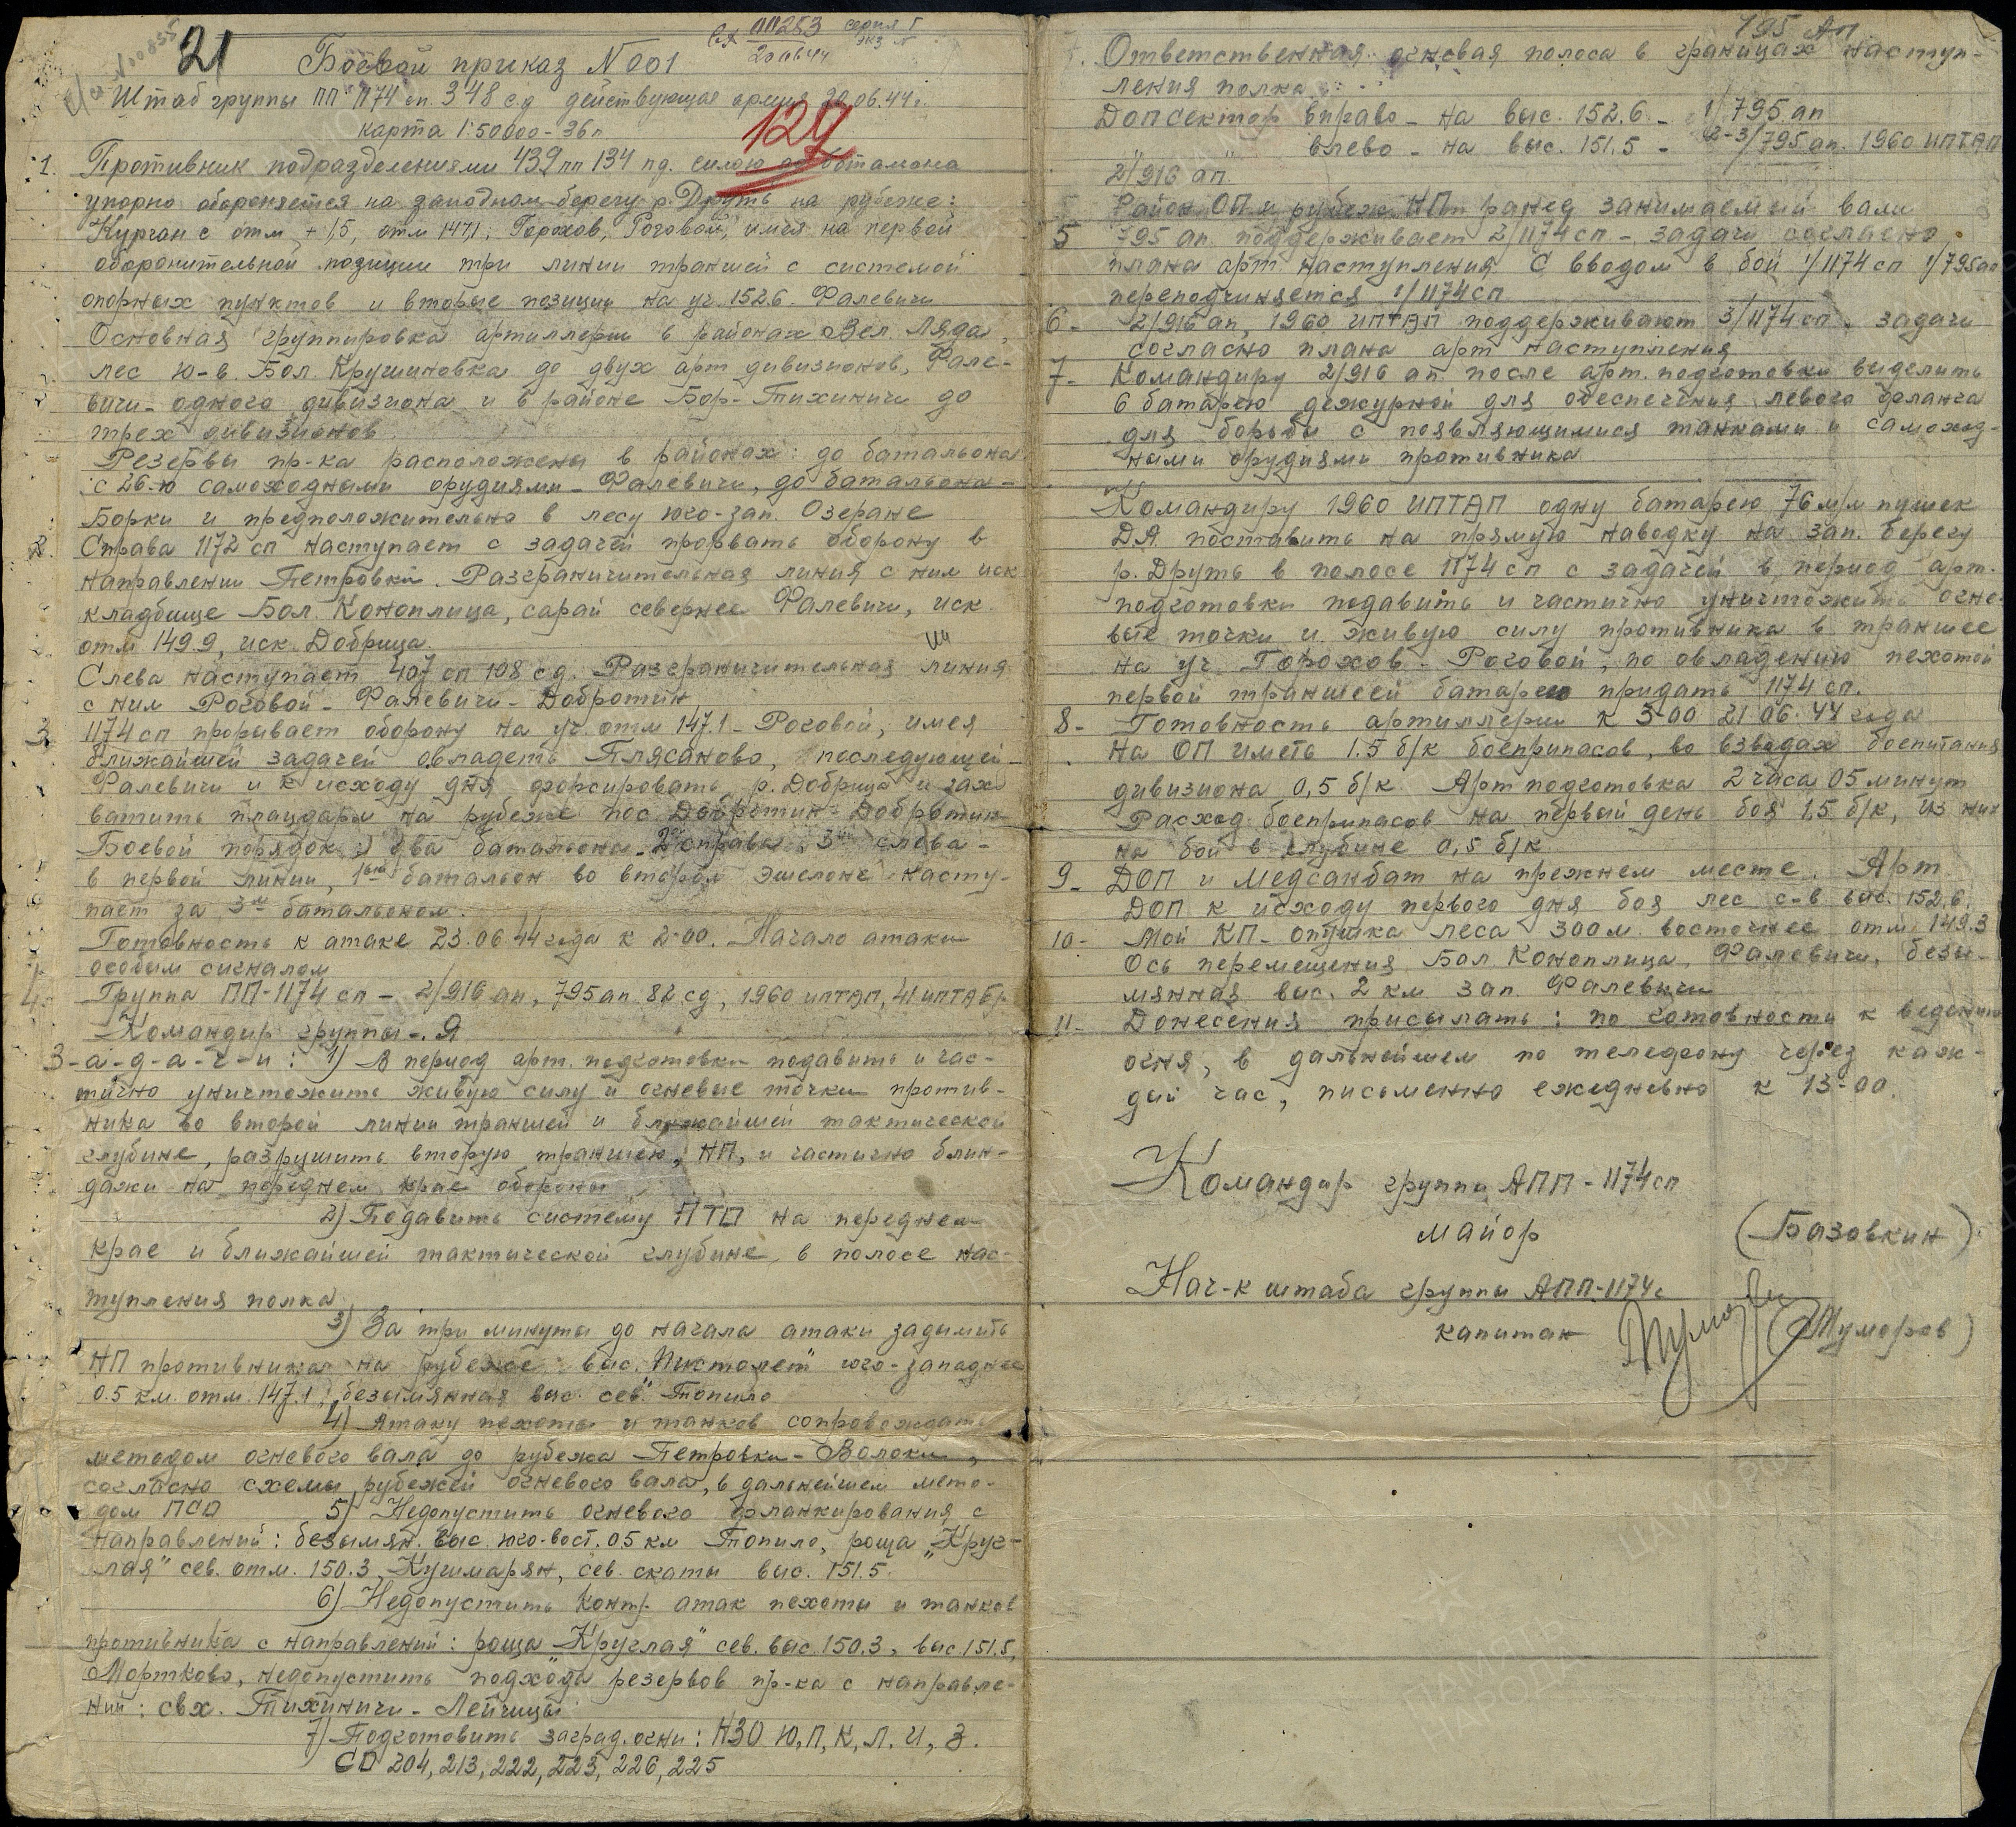 21
вх ПП253
20.06.44
серия Г
экз №
Боевой приказ №001
Штаб группы ПП 1174 сп. 348 с.д действующая армия 20.06.44г.
карта 1:50000-36г
129
1. Противник подразделениями 439 пп 134 пд. силою до батальона
упорно обороняется на западном берегу р. Друть на рубеже:
Курган с отм +1,5, отм 147.1; Горохов, Роговой, имея на первой
оборонительной позиции три линии траншей с системой
опорных пунктов и вторые позиции на уч. 152.6. Фалевичи
Основная группировка артиллерии в районах Вел. Ляда,
лес ю-в. Бол. Крушиновка до двух арт дивизионов, Фале-
вичи - одного дивизиона и в районе Бор-Тихиничи до
трех дивизионов.
Резервы пр-ка расположены в районах: до батальона
с 26-ю самоходными орудиями - Фалевичи, до батальона -
Борки и предположительно в лесу юго-зап. Озеране
2. Справа 1172 сп наступает с задачей прорвать оборону в
направлении Петровки. Разграничительная линия с ним иск
кладбище Бол. Коноплица, сарай севернее Фалевичи, иск.
отм 149.9, иск. Добрица.
Слева наступает 407 сп 108 с.д. Разграничительная линия
с ним Роговой - Фалевичи - Добротин
3. 1174 сп прорывает оборону на уч. отм 147.1 - Роговой, имея
ближайшей задачей овладеть Плясаново, последующей -
Фалевичи и к исходу дня форсировать р. Добрица и зах
ватить плацдарм на рубеже пос. Добротин - Добротин
Боевой порядок: два батальона - 2й справа, 3й слева -
в первой линии, 1вый батальон во втором эшелоне насту-
пает за 3м батальоном.
Готовность к атаке 23.06.44 года к 2-00. Начало атаки
особым сигналом
4. Группа ПП-1174 сп - 2/916 ап, 795 ап 82 сд, 1960 иптап, 41 иптабр
Командир группы - Я
З-а-д-а-ч-и: 1) В период арт. подготовки подавить и час-
тично уничтожить живую силу и огневые точки против-
ника во второй линии траншей и ближайшей тактической
глубине, разрушить вторую траншею, НП, и частично блин-
дажи на переднем крае обороны
2) Подавить систему ПТО на переднем
крае и ближайшей тактической глубине, в полосе нас-
тупления полка
3) За три минуты до начала атаки задымить
НП противника на рубеже: выс. "Пистолет" юго-западнее
0.5 км. отм. 147.1, безымянная выс. сев. Топило
4) Атаку пехоты и танков сопровождать
методом огневого вала до рубежа Петровки - Волоки,
согласно схемы рубежей огневого вала, в дальнейшем мето-
дом ПСО 5) Недопустить огневого фланкирования с
направлений: безымян. выс. юго-вост. 0.5 км Топило, роща "Круг-
лая" сев. отм. 150.3, Кушмарян, сев. скаты выс. 151.5.
6) Недопустить контр. атак пехоты и танков
противника с направлений: роща "Круглая" сев. выс. 150.3, выс. 151.5,
Мортково, недопустить подхода резервов пр-ка с направле-
ний: свх. Тихиничи - Лейчицы
7) Подготовить заград. огни: НЗО Ю, П, К, Л, И, З.
СО 204, 213, 222, 223, 226, 225
795 АП
Ответственная огневая полоса в границах наступ-
ления полка:
Доп сектор вправо - на выс. 152.6 - 1/795. ап
" " влево - на выс. 151.5 - 2-3/795 ап. 1960 ИПТАП
2/916 ап.
Район ОП и рубеж НП ранее занимаемый вами
5 795 ап. поддерживает 2/1174 сп - задачи согласно
плана арт. наступления. С вводом в бой 1/1174 сп 1/795 ап
переподчиняется 1/1174 сп
6- 2/916 ап, 1960 ИПТАП поддерживают 3/1174 сп, задачи
согласно плана арт наступления
7- Командиру 2/916 ап. после арт. подготовки выделить
6 батарею дежурной для обеспечения левого фланга
для борьбы с появляющимися танками и самоход-
ными орудиями противника
Командиру 1960 ИПТАП одну батарею 76 м/м пушек
ДА поставить на прямую наводку на зап. берегу
р. Друть в полосе 1174 сп с задачей в период арт.
подготовки подавить и частично уничтожить огне-
вые точки и живую силу противника в траншее
на уч. Горохов - Роговой, по овладению пехотой
первой траншеей батарею придать 1174 сп.
8- Готовность артиллерии к 5-00 21.06.44 года
На ОП иметь 1.5 б/к боеприпасов, во взводах боепитания
дивизиона 0,5 б/к. Арт подготовка 2 часа 05 минут
Расход боеприпасов на первый день боя 1,5 б/к, из них
на бой в глубине 0,5 б/к
9- ДОП и Медсанбат на прежнем месте. Арт
ДОП к исходу первого дня боя лес с-в. выс. 152.6.
10- Мой КП - опушка леса 300 м. восточнее отм. 149.3
Ось перемещения Бол. Коноплица, Фалевичи, безы-
мянная выс. 2 км зап. Фалевичи
11- Донесения присылать: по готовности к ведению
огня, в дальнейшем по телефону через каж-
дый час, письменно ежедневно к 13-00.
Командир группы АПП-1174 сп
майор (Базовкин)
Нач-к штаба группы АПП-1174 с
капитан (Туморов)